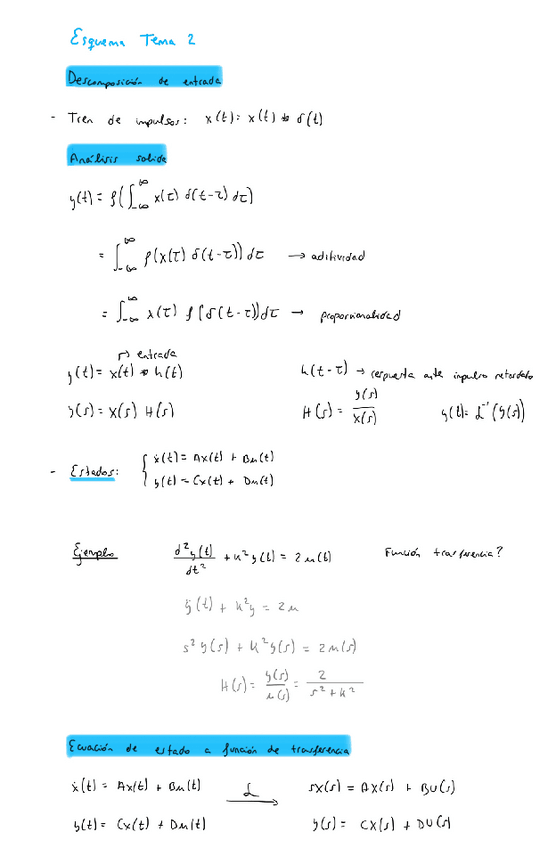 Esquema Tema 2
Descomposición de entrada
- Tren de impulsos: x(t) = x(t) * δ(t)
Análisis salida
y(t) = f(∫_{-∞}^{∞} x(τ) δ(t-τ) dτ)
= ∫_{-∞}^{∞} f(x(τ) δ(t-τ)) dτ → aditividad
= ∫_{-∞}^{∞} x(τ) f(δ(t-τ)) dτ → proporcionalidad
↱ entrada
y(t) = x(t) * h(t) h(t-τ) → respuesta ante impulso retardado
y(s) = X(s) H(s) H(s) = y(s)/X(s) y(t) = L⁻¹(y(s))
- Estados: { ẋ(t) = Ax(t) + Bu(t)
y(t) = Cx(t) + Du(t)
Ejemplo d²y(t)/dt² + k²y(t) = 2u(t) Función trasferencia?
ÿ(t) + k²y = 2u
s²y(s) + k²y(s) = 2u(s)
H(s) = y(s)/u(s) = 2/(s² + k²)
Ecuación de estado a función de transferencia
ẋ(t) = Ax(t) + Bu(t) L→ sX(s) = AX(s) + BU(s)
y(t) = Cx(t) + Du(t) y(s) = CX(s) + DU(s)